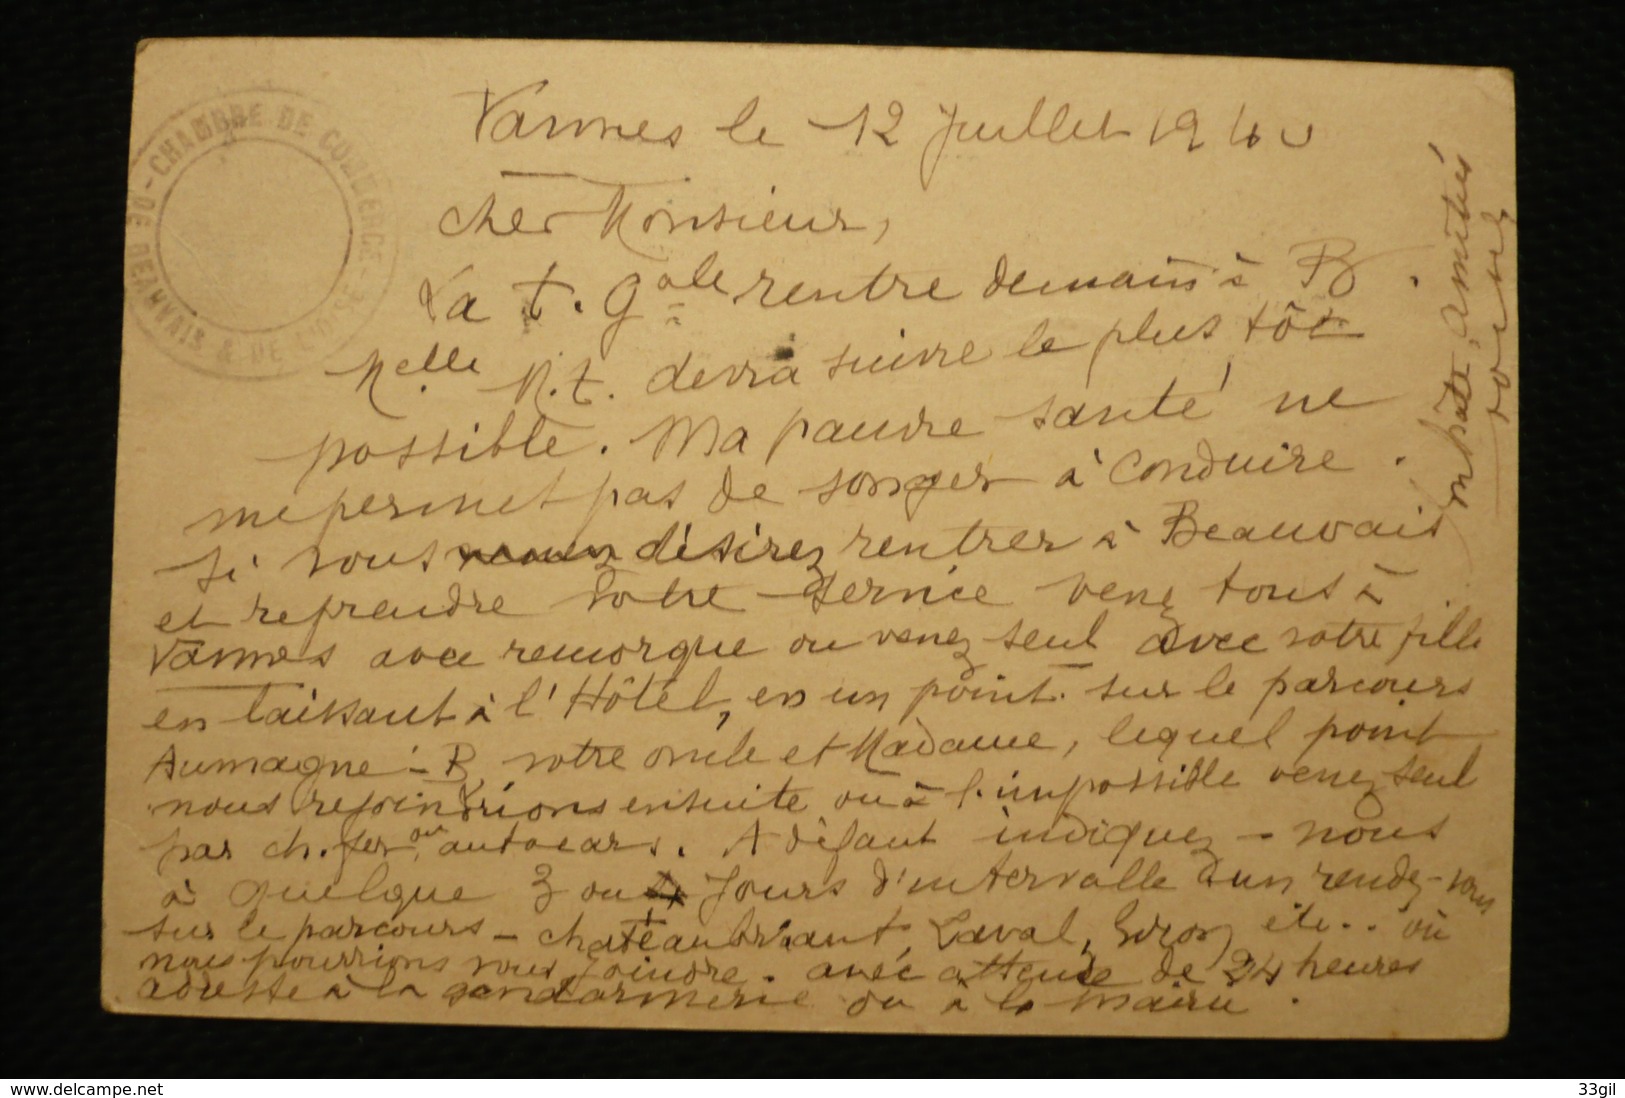 CHAMBRE DE COMMERCE DE BEAUVAIS & DE L'OISE
Vannes le 12 Juillet 1940
cher Monsieur,
La t. Gale rentre demain à B.
Melle N.t. devra suivre le plus tôt
possible. Ma pauvre santé ne
me permet pas de songer à conduire.
Si vous désirez rentrer à Beauvais
et reprendre votre service venez tous à
Vannes avec remorque ou venez seul avec votre fille
en laissant à l'Hôtel, en un point sur le parcours
Aumagne - B, votre oncle et Madame, lequel point
nous rejoindrions ensuite ou à l'impossible venez seul
par ch. fer ou autocars. A défaut indiquez-nous
à quelque 3 ou 4 Jours d'intervalle d'un rendez-vous
sur le parcours - chateaubriant, Laval, etc.. où
nous pourrions vous joindre. avec attente de 24 heures
adresse à la gendarmerie ou à la mairie.
hâte, amitiés
delcampe.net
33gil